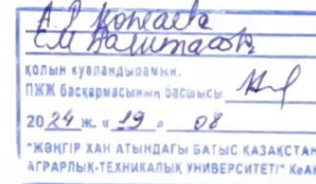 А.Р Конаева
Е.М Калитасов
қолын куәландырамын.
ПЖЖ басқармасының басшысы
2024 ж. « 19 » 08
"ЖӘҢГІР ХАН АТЫНДАҒЫ БАТЫС ҚАЗАҚСТАН
АГРАРЛЫҚ-ТЕХНИКАЛЫҚ УНИВЕРСИТЕТІ" КеАҚ